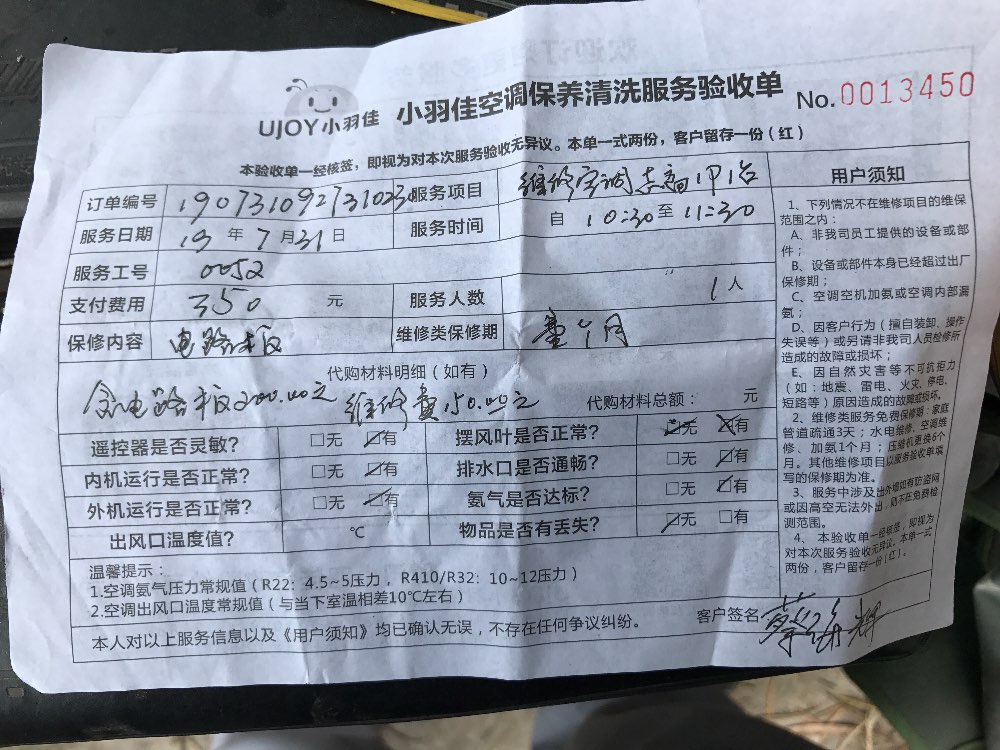 UJOY小羽佳 小羽佳空调保养清洗服务验收单 No.0013450
本验收单一经核签，即视为对本次服务验收无异议。本单一式两份，客户留存一份(红)
订单编号 服务项目 维修空调
服务日期 19年7月31日 服务时间 自 10:30至11:30
服务工号 0052
支付费用 350 元 服务人数 1人
保修内容 电路板 维修类保修期 个月
代购材料明细(如有)
电路板200.00元 维修费150.00元 代购材料总额： 元
遥控器是否灵敏? □无 ☑有 摆风叶是否正常? 无 有
内机运行是否正常? □无 ☑有 排水口是否通畅? □无 ☑有
外机运行是否正常? □无 ☑有 氨气是否达标? □无 ☑有
出风口温度值? ℃ 物品是否有丢失? ☑无 □有
温馨提示：
1.空调氨气压力常规值(R22: 4.5~5压力，R410/R32: 10~12压力)
2.空调出风口温度常规值(与当下室温相差10℃左右)
本人对以上服务信息以及《用户须知》均已确认无误，不存在任何争议纠纷。 客户签名
用户须知
1、下列情况不在维修项目的维保
范围之内：
A、非我司员工提供的设备或部
件；
B、设备或部件本身已经超过出厂
保修期；
C、空调空机加氨或空调内部漏
氨；
D、因客户行为(擅自装卸、操作
失误等)或另请非我司人员检修所
造成的故障或损坏；
E、因自然灾害等不可抗拒力
(如：地震、雷电、火灾、停电、
短路等)原因造成的故障或损坏。
2、维修类服务免费保修期：家庭
管道疏通3天；水电维修、空调维
修、加氨1个月；压缩机更换6个
月。其他维修项目以服务验收单填
写的保修期为准。
3、服务中涉及出外墙如有防盗网
或因高空无法外出，则不在免费检
测范围。
4、本验收单一经核签，即视为
对本次服务验收无异议。本单一式
两份，客户留存一份(红)。